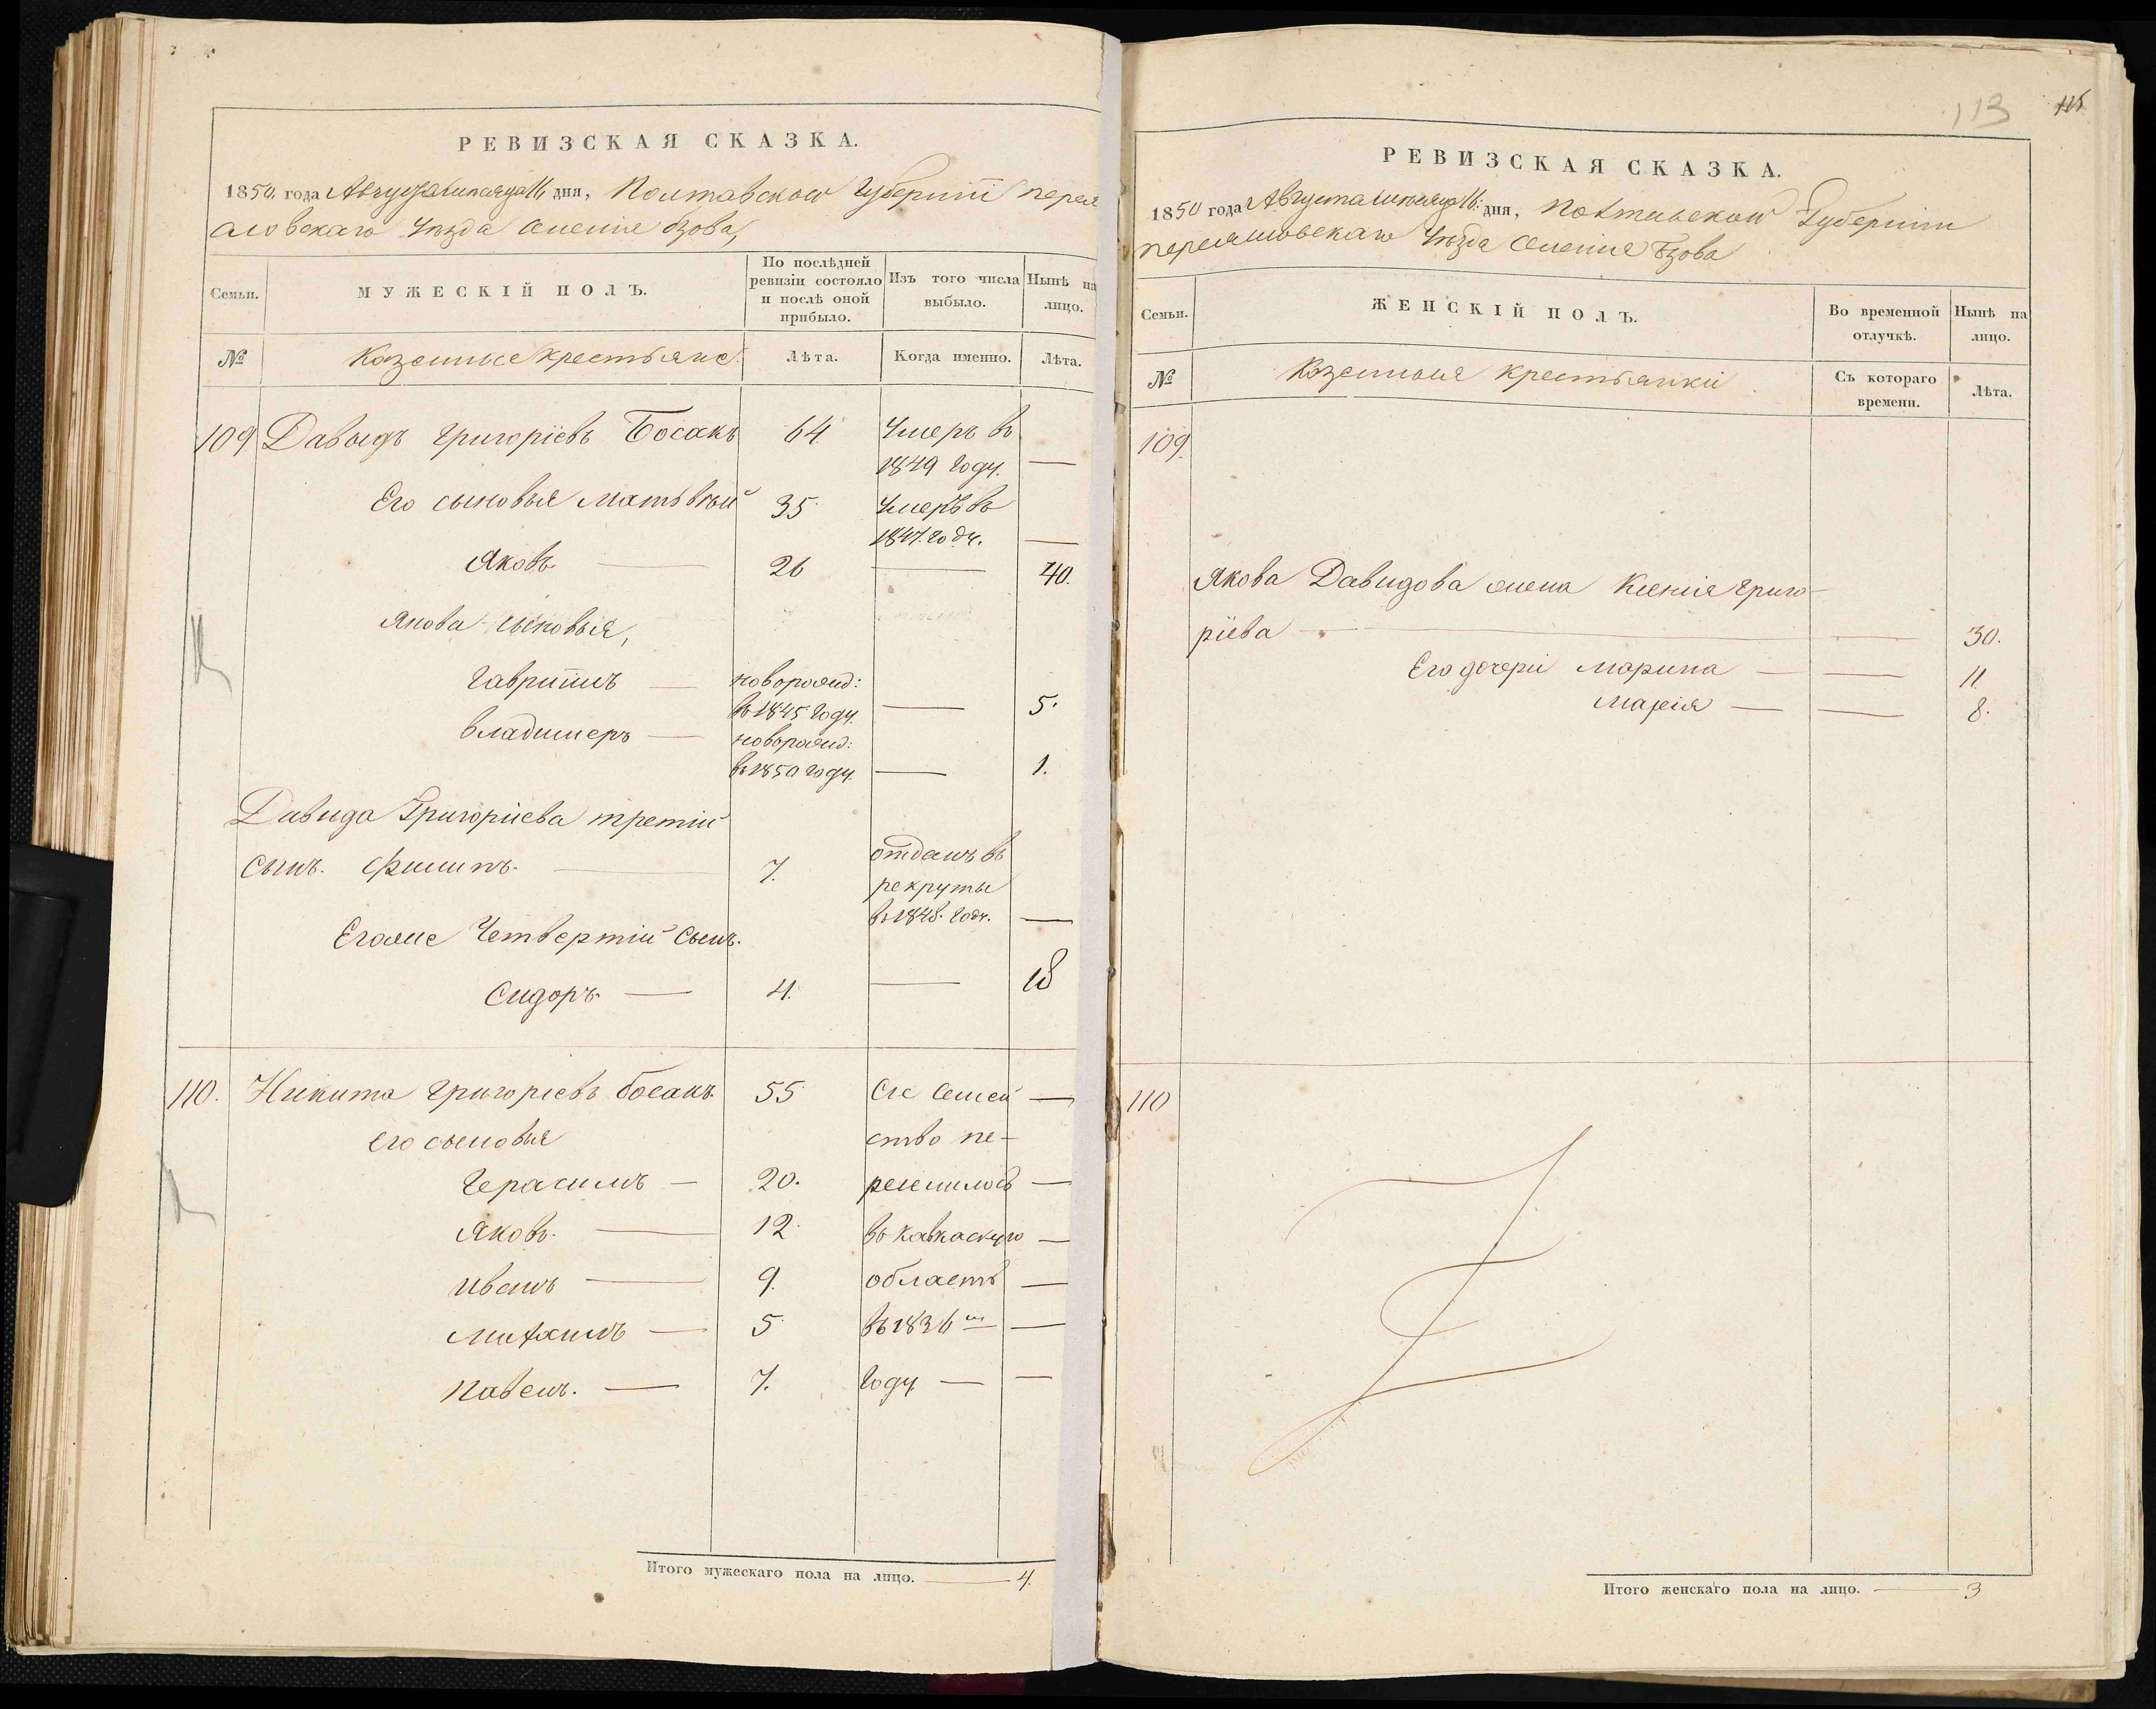 РЕВИЗСКАЯ СКАЗКА.
1850. года Августа месяца 16 дня, Полтавской Губернiи перея
словскаго Уѣзда Селенiе Бзова,
Семьи.
МУЖЕСКIЙ ПОЛЪ.
По послѣдней
ревизiи состояло
и послѣ оной
прибыло.
Изъ того числа
выбыло.
Нынѣ на
лицо.
№
Казенные крестьяне
Лѣта.
Когда именно.
Лѣта.
109. Давыдъ Григорiевъ Босакъ 64. Умеръ въ
1849 году. —
Его сыновья Матвѣй 35. Умеръ въ
1847. году. —
Яковъ — 26 — 40.
Якова сыновья,
Гаврiилъ — новорожд:
въ 1845 году. — 5.
Владимеръ — новорожд:
въ 1850 году. — 1.
Давида Григорiева третiй
сынъ. Филипъ. — 7. отданъ въ
рекруты
въ 1848. году. —
Егоже Четвертiй сынъ.
Сидоръ. — 4. — 18
110. Никита Григорiевъ Босакъ. 55 Сiе Семей —
его сыновья ство пе-
Герасимъ — 20. реселилось —
Яковъ. — 12. въ Кавкаскую —
Иванъ — 9. область —
Михаилъ — 5 въ 1836 м —
Павелъ. — 7. году — —
Итого мужескаго пола на лицо. — 4.
113
115.
РЕВИЗСКАЯ СКАЗКА.
1850 года Августа месяца 16: дня, Полтавской Губернiи
переясловскаго Уѣзда Селенiя Бзова
Семьи.
ЖЕНСКIЙ ПОЛЪ.
Во временной
отлучкѣ.
Нынѣ на
лицо.
№
Казенныя крестьянки
Съ котораго
времени.
Лѣта.
109.
Якова Давидова жена Ксенiя Григо-
рiева — — 30.
Его дочери Марина — — 11.
Марiя — — 8.
110
Итого женскаго пола на лицо. — 3